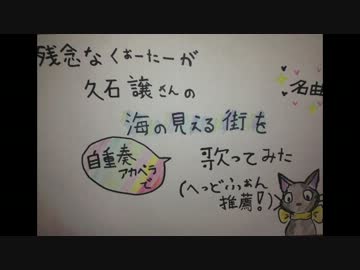 残念なくぉーたーが
久石譲さんの
名曲
海の見える街を
自重奏
アカペラ
で
歌ってみた
(へっどふぉん
推薦!)